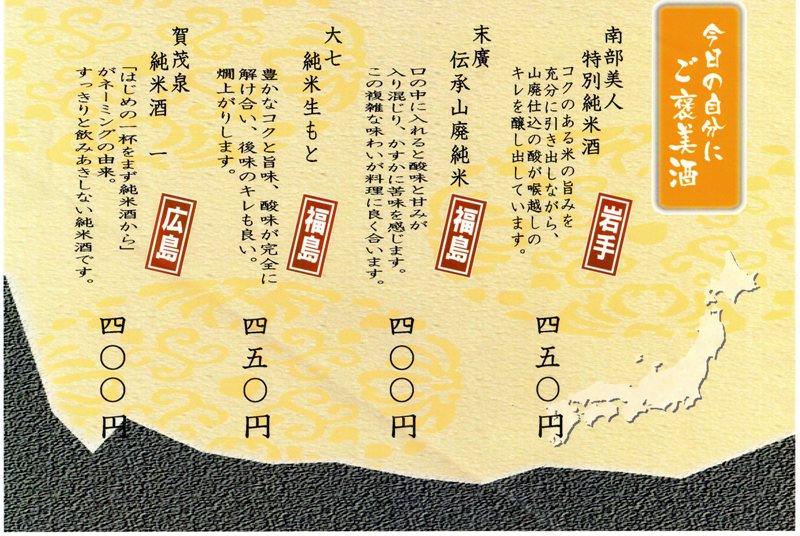 今日の自分に
ご褒美酒
南部美人
特別純米酒
コクのある米の旨みを
充分に引き出しながら、
山廃仕込の酸が喉越しの
キレを醸し出しています。
岩手
四五〇円
末廣
伝承山廃純米
口の中に入れると酸味と甘みが
入り混じり、かすかに苦味を感じます。
この複雑な味わいが料理に良く合います。
福島
四〇〇円
大七
純米生もと
豊かなコクと旨味、酸味が完全に
解け合い、後味のキレも良い。
燗上がりします。
福島
四五〇円
賀茂泉
純米酒 一
「はじめの一杯をまず純米酒から」
がネーミングの由来。
すっきりと飲みあきしない純米酒です。
広島
四〇〇円